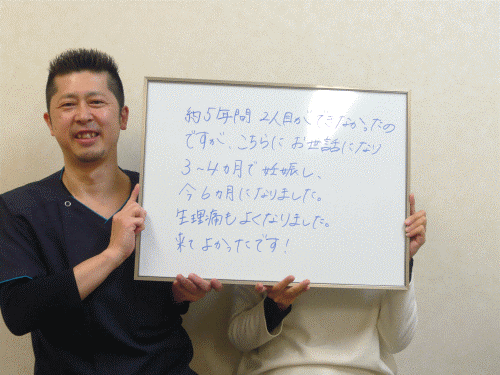 約5年間 2人目ができなかったの
ですが、こちらに お世話になり
3~4カ月で 妊娠し、
今6カ月になりました。
生理痛もよくなりました。
来て よかったです!